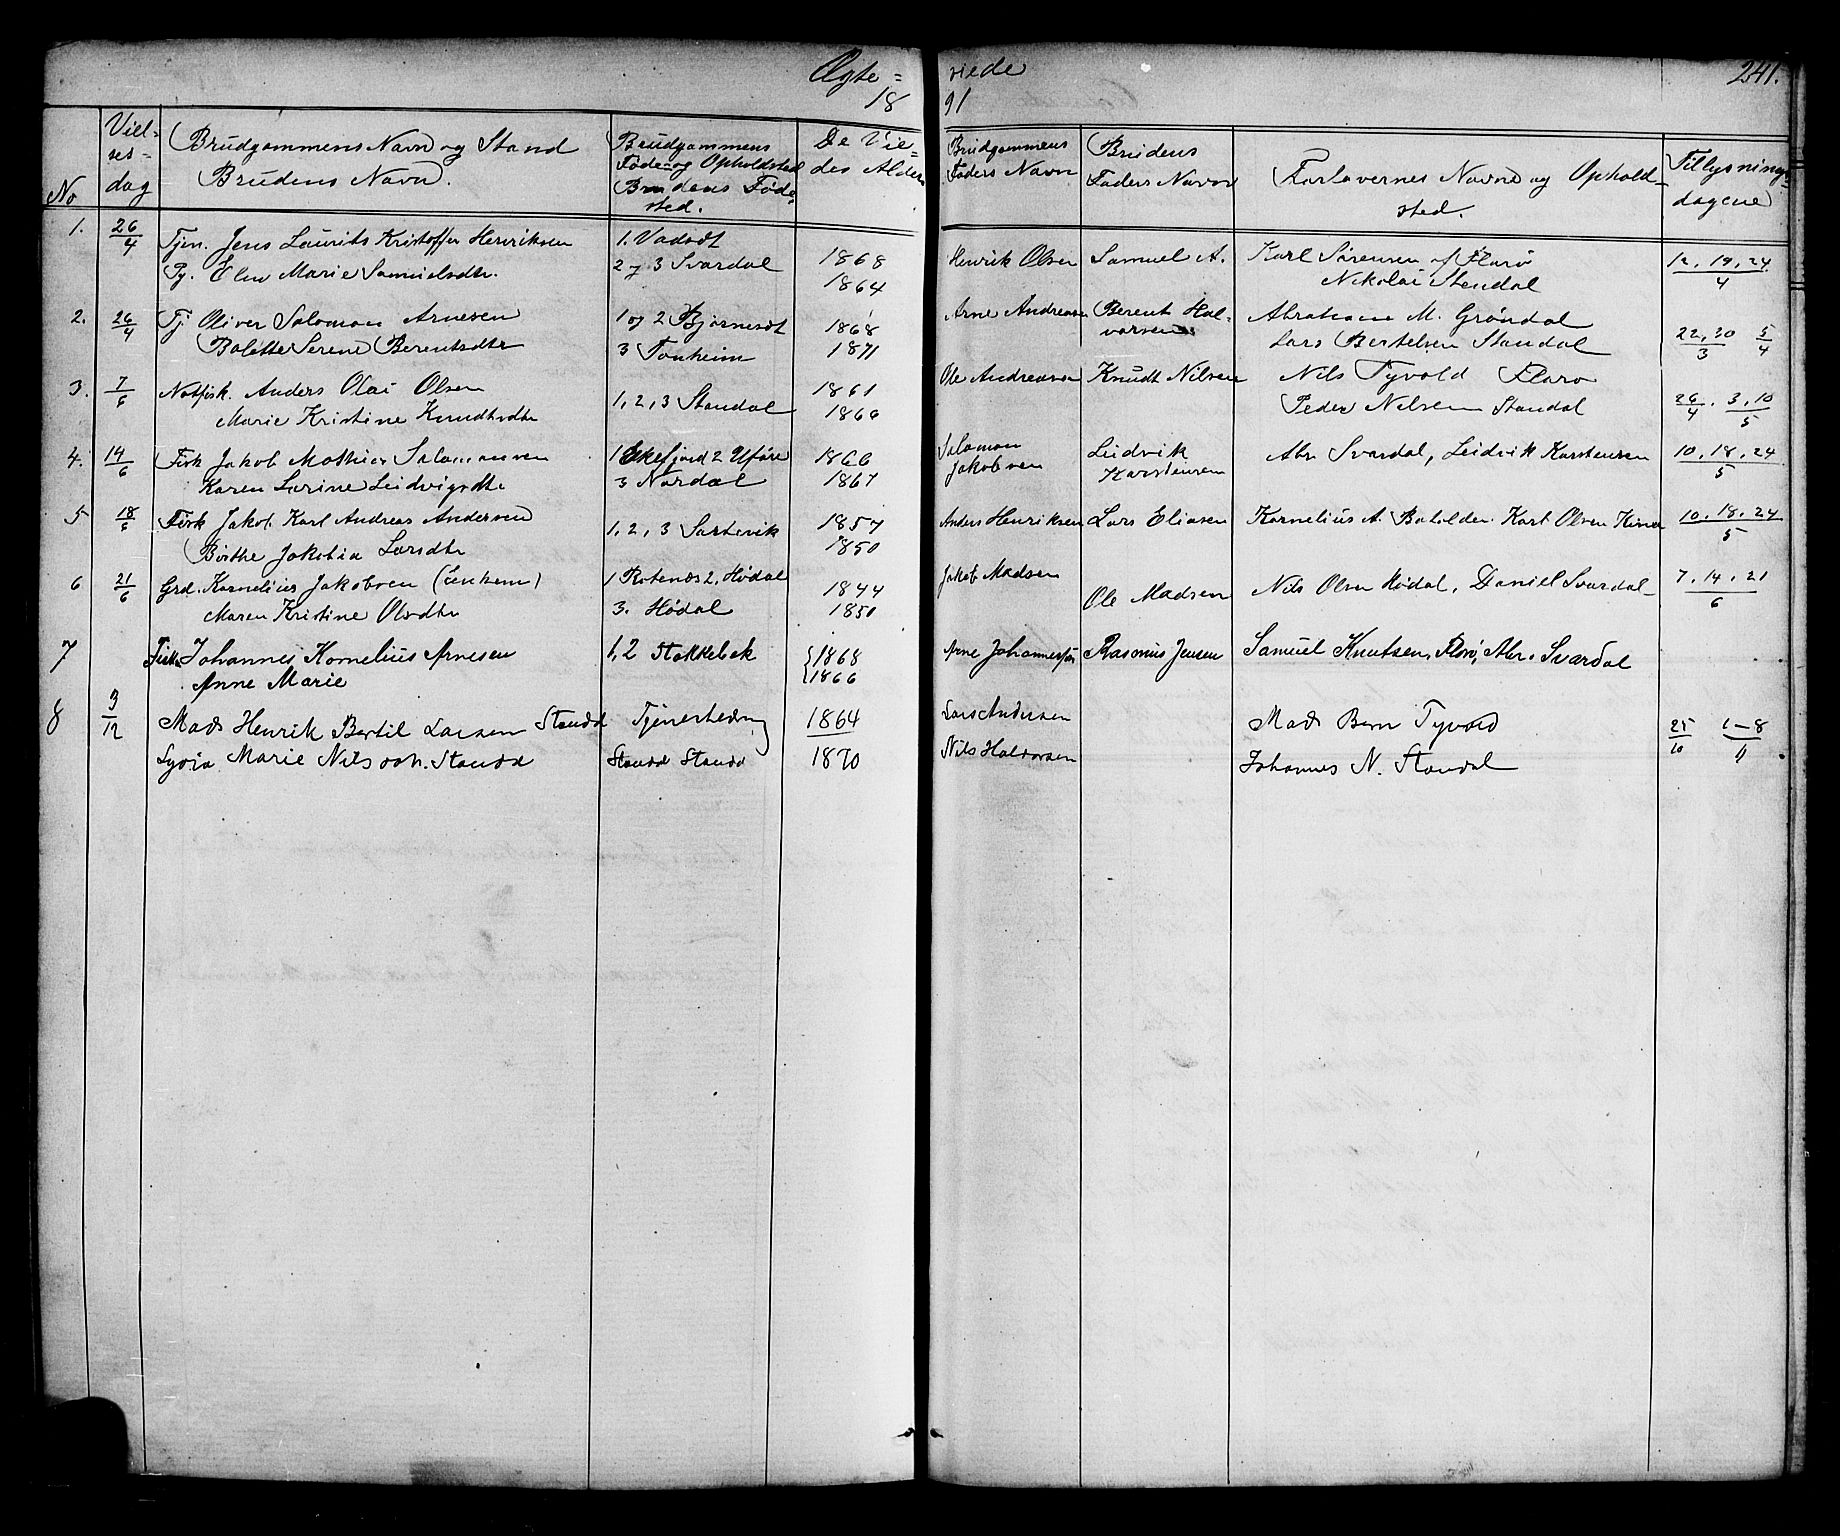 Ægte= viede 241.
18 91
No
Viel=
ses=
dag
Brudgommens Navn og Stand
Brudens Navn.
Brudgommens
Føde- og Opholdsted
Brudens Føde-
sted.
De Vie=
des Alder
Brudgommens
Faders Navn
Brudens
Faders Navn
Forlovernes Navne og Ophold-
sted.
Tillysnings=
dagene
1. 26/4 Tjen. Jens Laurits Kristoffer Henriksen 1. Vadødt 1868 Henrik Olsen Samuel A. Karl Sørensen af Florø 12, 19, 24/4
Pg. Elen Marie Samuelsdtr. 2 og 3 Svardal 1864 Nikolai Standal
2. 26/4 Tj Oliver Salomon Arnesen 1 og 2 Bjørnesdt 1868 Arne Andreasen Berent Hal-
vorsen Abraham M. Grøndal 22, 30/3 5/4
Bolette Serene Berentsdtr 3 Tonheim 1871 Lars Bertelsen Standal
3. 7/6 Notfisk. Anders Olai Olsen 1, 2, 3 Standal 1861 Ole Andreasen Knudt Nilsen Nils Tyvold Florø 26/4. 3, 10/5
Marie Kristine Knudtsdtr 1866 Peder Nilsen Standal
4. 14/6 Fisk Jakob Mathias Salomonsen 1 Eikefjord 2 Uføre 1866 Salomon
Jakobsen Ludvik
Karstensen Abr Svardal, Ludvik Karstensen 10, 18, 24/5
Karen Serine Ludvigsdtr 3 Nordal 1867
5 18/6 Fisk Jakob Karl Andreas Andersen 1, 2, 3 Sortevik 1857 Anders Henriksen Lars Eliasen Kornelius A. Batalden. Karl Olsen Kinn 10. 18. 24/5
Birthe Jakobia Larsdtr 1850
6 21/6 Grd. Kornelius Jakobsen (Enkem) 1 Rotenes 2, Hødal 1844 Jakob Madsen Ole Madsen Nils Olsen Hødal, Daniel Svardal 7. 14. 21/6
Maren Kristine Olsdtr 3. Hødal 1850
7 Fisk. Johannes Kornelius Arnesen 1, 2 Stokkebek 1868 Arne Johannessen Rasmus Jensen Samuel Knutsen, Florø, Abr. Svardal
Anne Marie 1866
8 3/12 Mads Henrik Bertil Larsen Standd Tjenesteder 1864 Lars Andersen Mads Bern Tyvold 25/10 1-8/11
Marie Nilsdtr. Standd Standd Standd 1870 Nils Halvorsen Johannes N. Standal